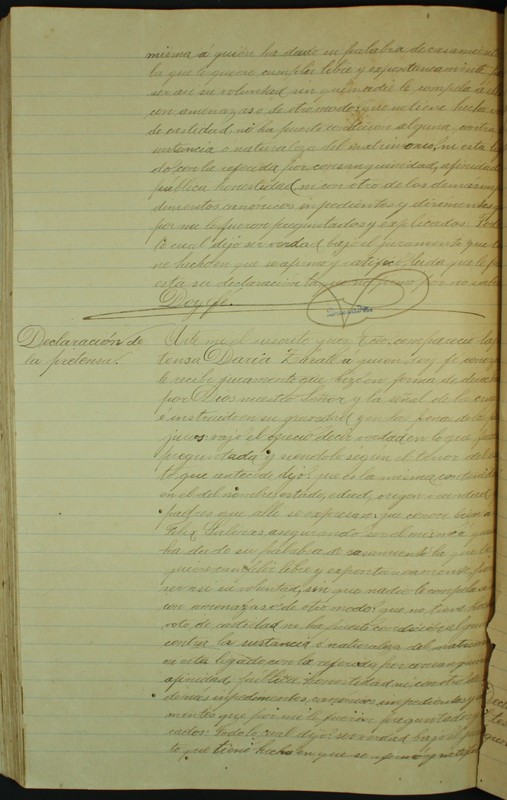 misma á quién ha dado su palabra de casamiento
la que le quiere cumplir libre y espontaneamente por
ser asi su voluntad sin que nadie le compela á ello
con amenazas o de otro modo: que no tiene hecho voto
de castidad, no ha puesto condicion alguna contra la
sustancia o naturaleza del matrimonio, ni esta liga
do con la referida por consanguinidad, afinidad
pública honestidad, ni con otro de los demas im
dimentos canónicos impedientes y dirimentes que
por mi le fueron preguntados y explicados. Todo
lo cual dijo ser verdad bajo el juramento que tie
ne hecho en que se afirmó y ratificó leida que le fué
esta su declaración la que no firmó por no saber
Doy fé.
Declaración de
la pretensa.
Ante mi el suscrito Juez Eco. comparecio la pre
tensa María á quien doy fé conozco
le recibí juramento que hizo en forma de derecho
por Dios nuestro Señor y la señal de la cruz
é instruida en su gravedad y en las penas de los per
juros bajo el ofreció decir verdad en lo que fuere
preguntada y siendole segun el tenor del
to que antecede dijo: que es la misma contenida
en el del nombre, estado, edad, origen é
padres que alli se expresa: que conoce bien a
Felix Salinas asegurando ser el mismo á quien
ha dado su palabra de casamiento la que le
quiere cumplir libre y espontaneamente por
ser asi su voluntad, sin que nadie le compela
con amenazas o de otro modo: que no tiene hecho
voto de castidad no ha puesto condición alguna
contra la sustancia o naturaleza del matrimo
ni esta ligado con la referida por consanguini
afinidad, publica honestidad ni con otro
demas impedimentos canonicos impedientes y
mentes que por mi le fueron preguntados y
cados. Todo lo cual dijo ser verdad bajo el jura
to que tiene hecho en que se afirmó y ratificó